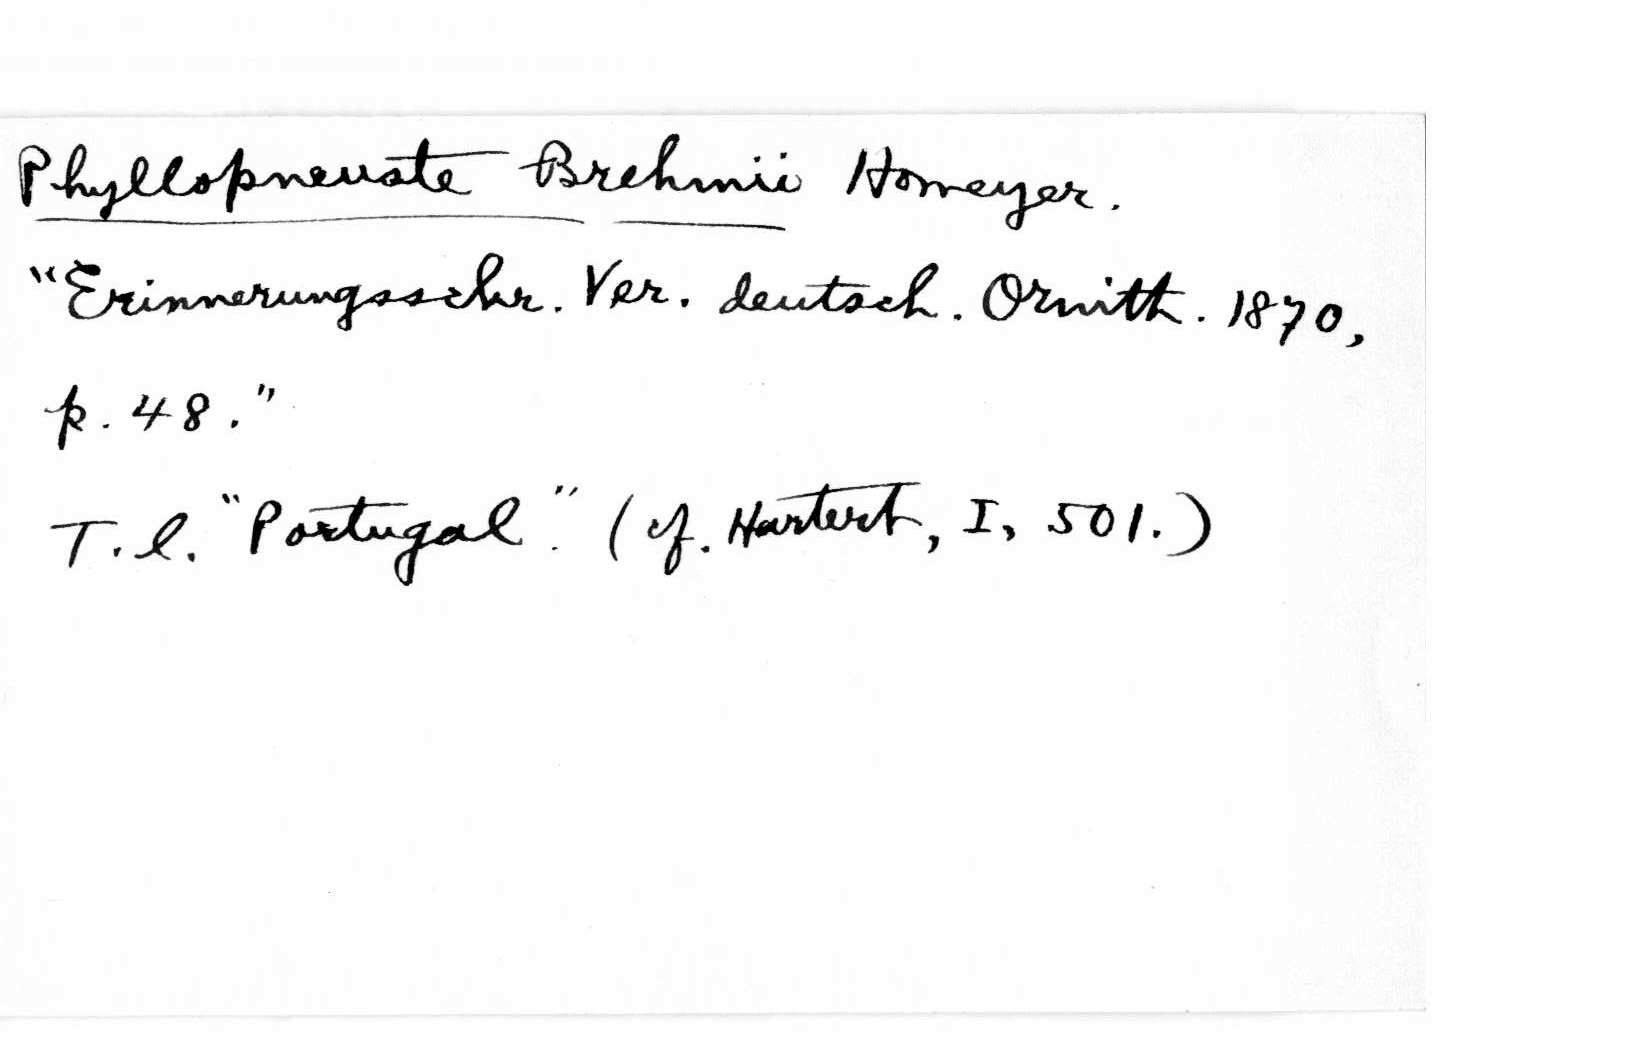 Phyllopneuste Brehmii Homeyer.
"Erinnerungsschr. Ver. deutsch. Ornith. 1870,
p. 48."
T.l. "Portugal". (cf. Hartert, I, 501.)